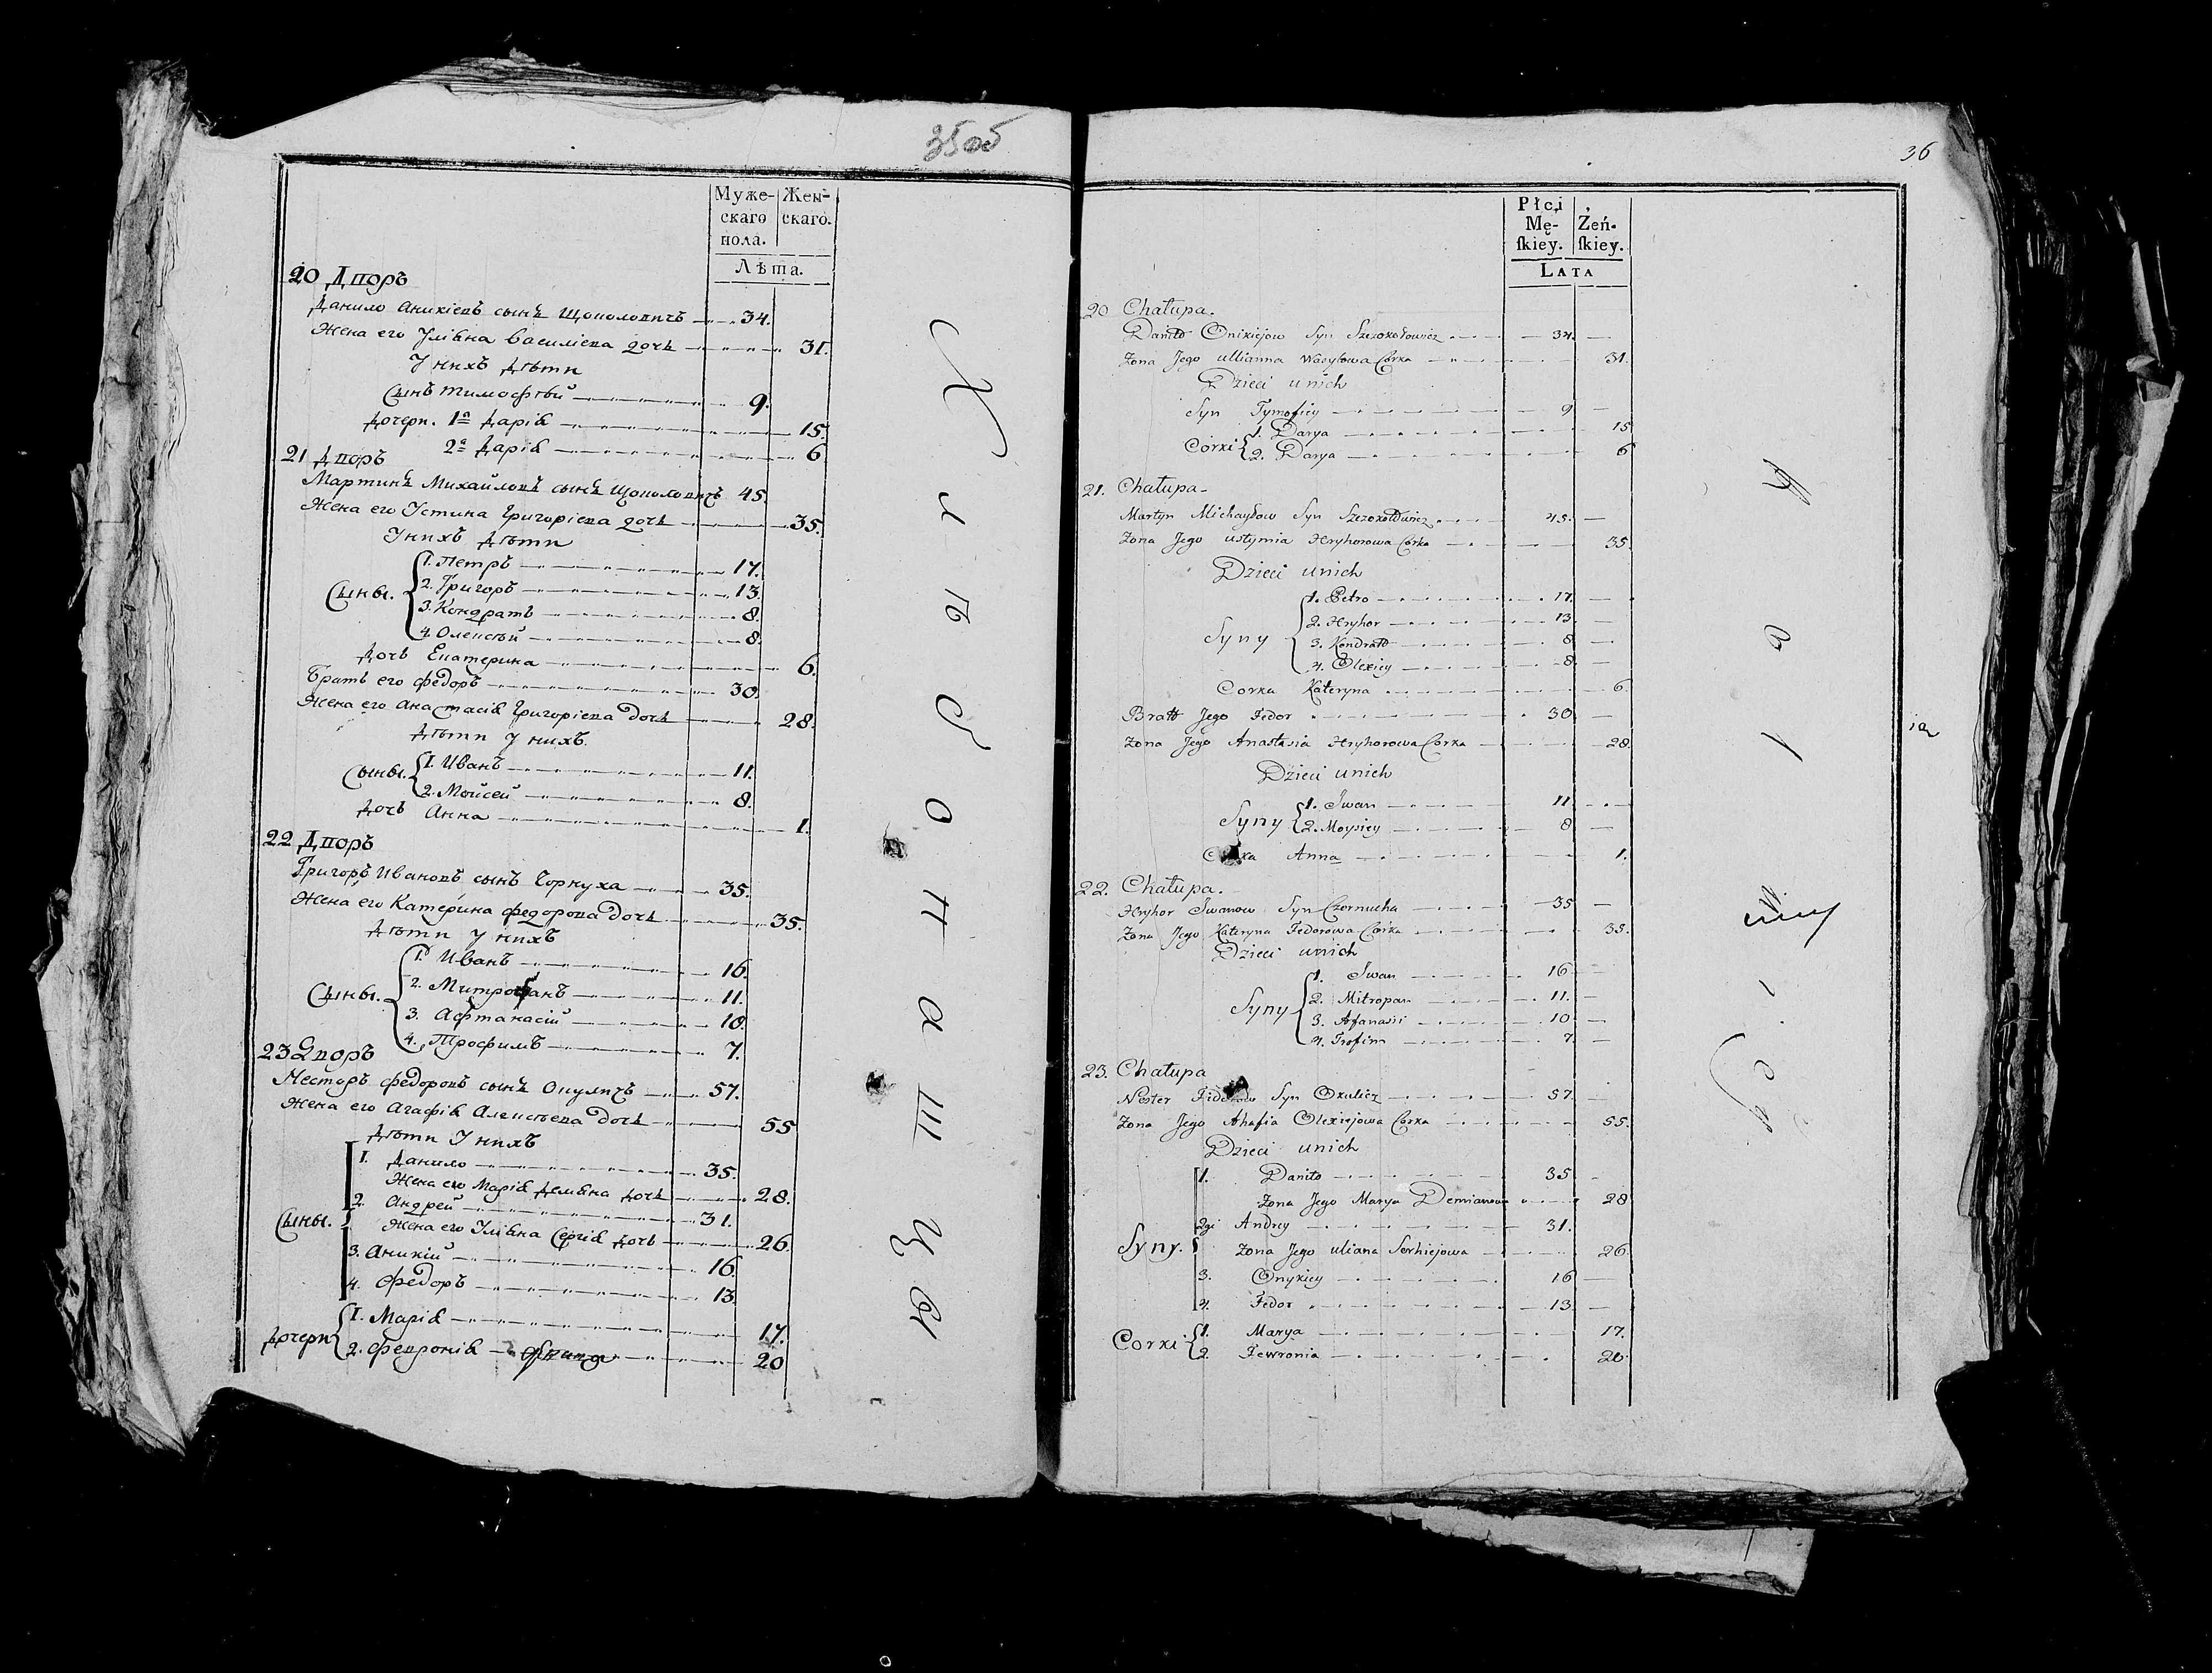 35об
Муже- Жен-
скаго скаго.
пола.
Лѣта.
20 Дворъ
Данило Аникіевъ сынъ Щоколовичъ 34.
Жена его Улиана Василиева дочь 31.
У нихъ Дѣти
Сынъ Тимофѣй 9.
Дочери. 1я Дарія 15.
2я Дарія 6
21 Дворъ
Мартинъ Михайловъ сынъ Щоколовичъ 45.
Жена его Устина Григоріева дочь 35.
У нихъ Дѣти
Сыны. 1. Петръ 17.
2. Григоръ 13.
3. Кондратъ 8.
4. Олексѣй 8.
Дочь Екатерина 6.
Братъ его Федоръ 30.
Жена его Анастасія Григоріева Дочь 28.
Дѣти У нихъ.
Сыны. 1. Иванъ 11.
2. Мойсей 8.
Дочь Анна 1.
22 Дворъ
Григоръ Ивановъ сынъ Чорнуха 35.
Жена его Катерина Федорова Дочь 35.
Дѣти У нихъ
Сыны. 1. Иванъ 16.
2. Митрофанъ 11.
3. Афтанасій 10.
4. Трофимъ 7.
23 Дворъ
Несторъ Федоровъ сынъ Окуличъ 57.
Жена его Агафія Алексѣева Дочь 55
Дѣти У нихъ
1. Данило 35.
Жена его Марія Деміяна Дочь 28.
2. Андрей 31.
Сыны. Жена его Уліяна Сергія Дочь 26.
3. Аникій 16.
4. Федоръ 13.
Дочери 1. Марія 17.
2. Февронія 20
Хлѣбопашцы
36
Płci
Mę- Żeń-
ſkiey. ſkiey.
LATA
20 Chałupa.
Daniło Onikiejow Syn Szczokołowicz 34.
Zona Jego Ullianna Wasylowa Corka 31.
Dzieci unich
Syn Tymofiey 9
Córki 1. Darya 15
2. Darya 6
21. Chałupa
Martyn Michayłow Syn Szczokołowicz 45.
Zona Jego Ustymia Hryhorowa Corka 35.
Dzieci unich
Syny 1. Petro 17.
2. Hryhor 13
3. Kondratt 8
4. Olexiey 8
Corka Kateryna 6.
Bratt Jego Fedor 30
Zona Jego Anastasia Hryhorowa Corka 28.
Dzieci unich
Syny 1. Iwan 11
2. Moysiey 8
Corka Anna 1.
22. Chałupa.
Hryhor Iwanow Syn Czornucha 35
Zona Jego Kateryna Fedorowa Córka 35.
Dzieci unich
Syny 1. Iwan 16
2. Mitropan 11.
3. Afanasii 10
4. Trofim 7.
23. Chałupa
Nester Fidorow Syn Okulicz 57.
Zona Jego Ahafia Olexiejowa Corka 55.
Dzieci unich
1. Daniło 35
Zona Jego Marya Demianowa 28
2gi Andrey 31.
Syny. Zona Jego Uliana Serhiejowa 26
3. Onykiey 16
4. Fedor 13
Corki 1. Marya 17.
2. Fewronia 20.